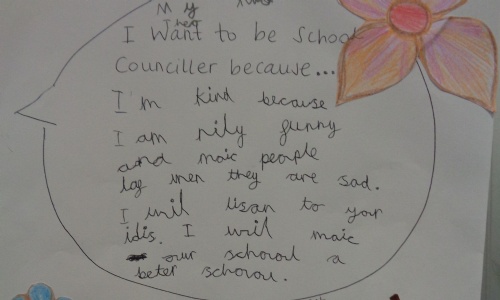 I Want to be School
Counciller because...
I'm kind because
I am rily funny
and maic people
laf wen they are sad.
I wil lisan to yor
idis. I wil maic
our schoool a
beter schoool.